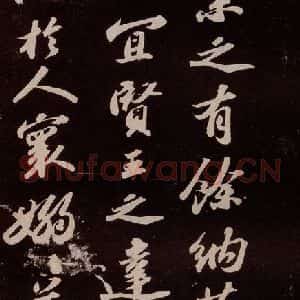 之有餘納
宜賢王之達
於人寰嫋
Shufawang.CN